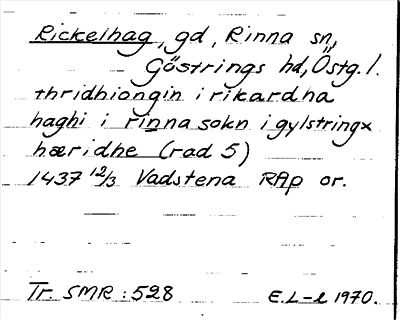 Rickelhag, gd, Rinna sn,
Göstrings hd, Östg. l.
thridhiongin i rikardha
haghi i rinna sokn i gylstringx
hæridhe (rad 5)
1437 12/3 Vadstena RAp or.
Tr. SMR : 528 E. L-l 1970.